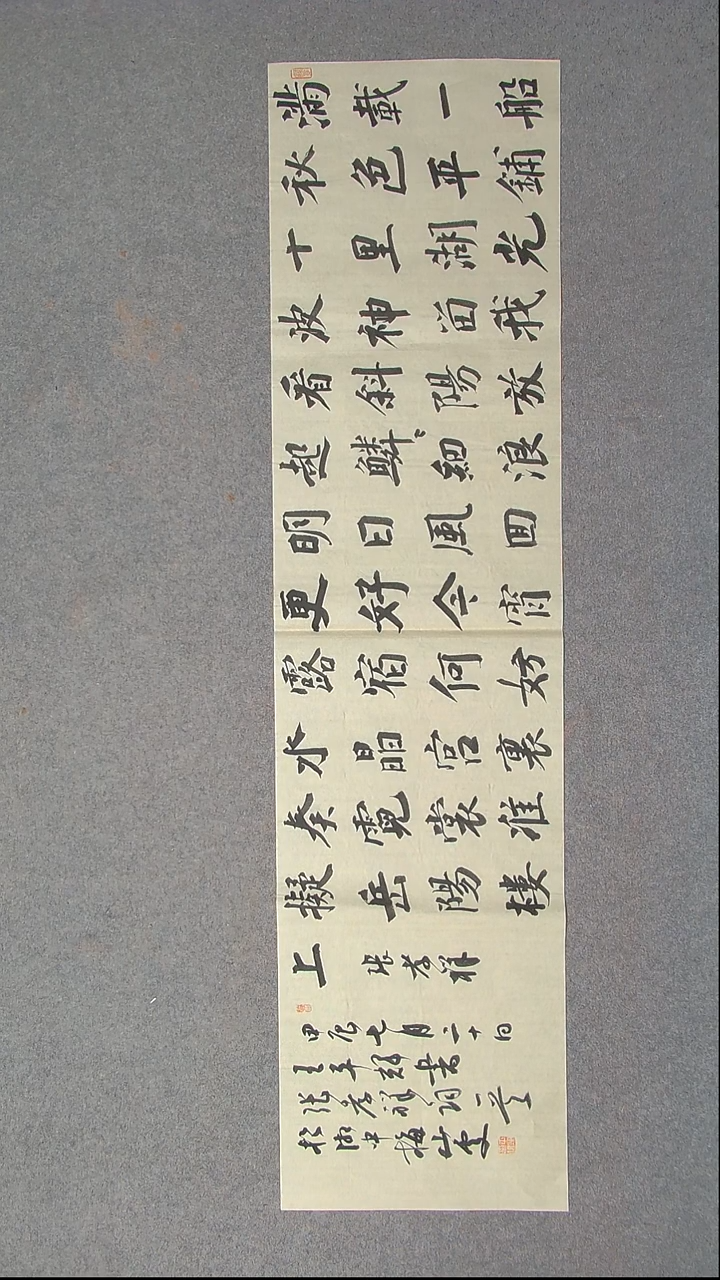 滿載一船
秋色平鋪
十里湖光
波神留我
看斜陽放
起鱗〻細浪
明日風回
更好今宵
露宿何妨
水晶宮裏
奏霓裳准
擬岳陽樓
上 張孝祥
甲辰七月二十日
書
張孝祥詞一首
於湘中梅山